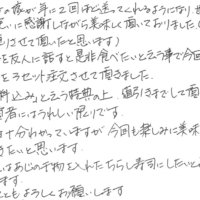 の度が年に2回ほど送ってくれるようになり
に感謝しながら美味しく頂いておりました
りさせて頂いたと思います)
を友人に話すと是非食べたいと言う事で今回
をセット注文させて頂きました。
料込み」と言う特典の上、値引きまでして頂
者にはうれしい限りです。
十分わかっていますが今回も楽しみに美味
きたいと思います。
はあじの干物を入れたちらし寿司にしたいと
ます。
ともよろしくお願いします